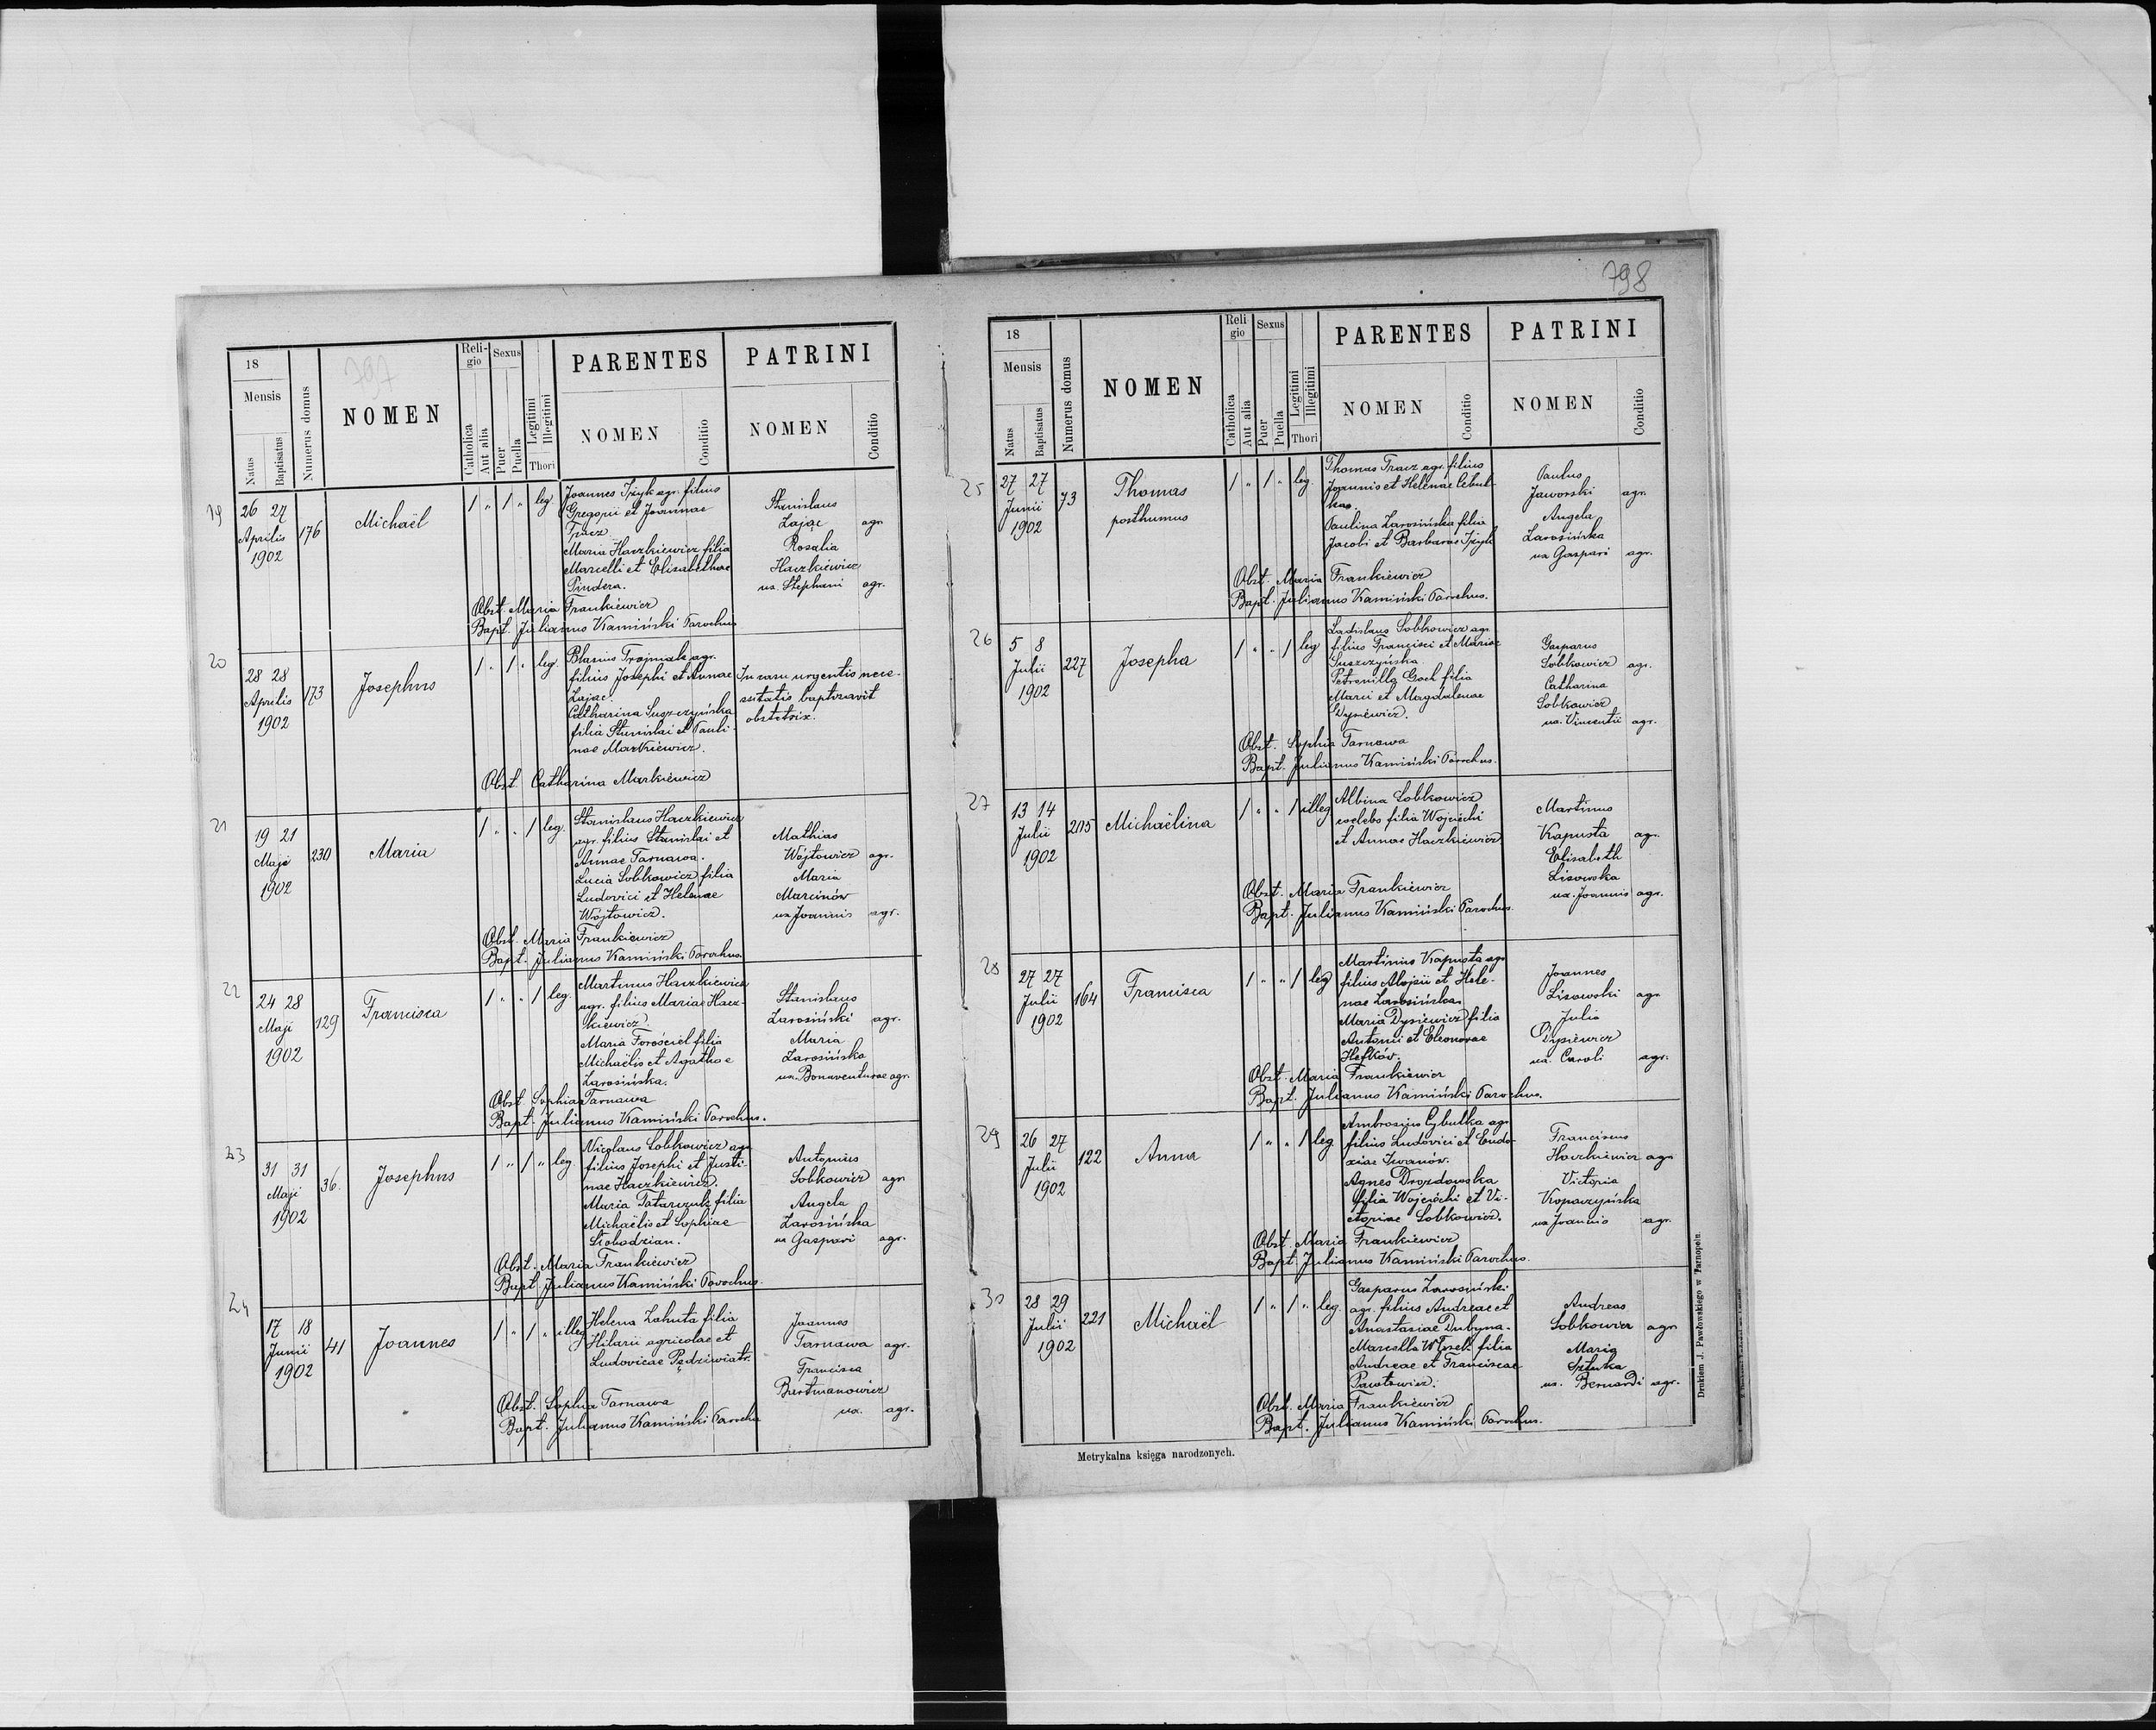 797
18
Mensis
Natus
Baptisatus
Numerus domus
NOMEN
Reli-
gio
Catholica
Aut alia
Sexus
Puer
Puella
Legitimi
Illegitimi
Thori
PARENTES
NOMEN
Conditio
PATRINI
NOMEN
Conditio
19
26 27
Aprilis
1902
176
Michaël
1 " 1 " leg.
Joannes Iżyk agr. filius
Gregorii et Joannae
Tracz
Maria Haczkiewicz filia
Marcelli et Elisabethae
Pindera.
Stanislaus
Zając agr.
Rosalia
Haczkiewicz
ux. Stephani agr.
Obst. Maria Frankiewicz
Bapt. Julianus Kamiński Parochus
20
28 28
Aprilis
1902
173
Josephus
1 " 1 " leg.
Blasius Trojniak agr.
filius Josephi et Annae
Zając.
Catharina Suszczyńska
filia Stanislai et Pauli-
nae Markiewicz.
In casu urgentis nece-
ssitatis baptizavit
obstetrix.
Obst. Catharina Markiewicz
21
19 21
Maji
1902
230
Maria
1 " " 1 leg.
Stanislaus Haczkiewicz
agr. filius Stanislai et
Annae Tarnawa.
Lucia Sobkowicz filia
Ludovici et Helenae
Wójtowicz.
Mathias
Wójtowicz agr.
Maria
Marcinów
ux Joannis agr.
Obst. Maria Frankiewicz
Bapt. Julianus Kamiński Parochus.
22
24 28
Maji
1902
129
Francisca
1 " " 1 leg.
Martinus Haczkiewicz
agr. filius Mariae Hacz-
kiewicz.
Maria Forościel filia
Michaëlis et Agathae
Zarosińska.
Stanislaus
Zarosiński agr.
Maria
Zarosińska
ux. Bonaventurae agr.
Obst. Sophia Tarnawa
Bapt. Julianus Kamiński Parochus.
23
31 31
Maji
1902
36.
Josephus
1 " 1 " leg.
Nicolaus Sobkowicz agr.
filius Josephi et Justi-
nae Haczkiewicz.
Maria Tatarczuk filia
Michaëlis et Sophiae
Słobodzian.
Antonius
Sobkowicz agr.
Angela
Zarosińska
ux Gaspari agr.
Obst. Maria Frankiewicz
Bapt. Julianus Kamiński Parochus.
24
17 18
Junii
1902
41
Joannes
1 " 1 " illeg
Helena Zahuta filia
Hilarii agricolae et
Ludovicae Pędziwiatr.
Joannes
Tarnawa agr.
Francisca
Bartmanowicz
ux. agr.
Obst. Sophia Tarnawa
Bapt. Julianus Kamiński Parochus
798
18
Mensis
Natus
Baptisatus
Numerus domus
NOMEN
Reli
gio
Catholica
Aut alia
Sexus
Puer
Puella
Legitimi
Illegitimi
Thori
PARENTES
NOMEN
Conditio
PATRINI
NOMEN
Conditio
25
27 27
Junii
1902
73
Thomas
posthumus
1 " 1 " leg.
Thomas Tracz agr. filius
Joannis et Helenae Cebul-
Paulina Zarosińska filia
Jacobi et Barbarae Iżyk
Paulus
Jaworski agr.
Angela
Zarosińska
ux Gaspari agr.
Obst. Maria Frankiewicz
Bapt. Julianus Kamiński Parochus.
26
5 8
Julii
1902
227
Josepha
1 " " 1 leg
Ladislaus Sobkowicz agr.
filius Francisci et Mariae
Suszczyńska
Petronilla Goel filia
Marci et Magdalenae
Dysiewicz.
Gasparus
Sobkowicz agr.
Catharina
Sobkowicz
ux. Vincentii agr.
Obst. Sophia Tarnawa
Bapt. Julianus Kamiński Parochus.
27
13 14
Julii
1902
205
Michaëlina
1 " " 1 illeg
Albina Sobkowicz
coelebs filia Wojciechi
et Annae Haczkiewicz
Martinus
Kapusta agr.
Elisabeth
Lisowska
ux. Joannis agr.
Obst. Maria Frankiewicz
Bapt. Julianus Kamiński Parochus.
28
27 27
Julii
1902
164
Francisca
1 " " 1 leg
Martinus Kapusta agr
filius Alojsii et Hele-
nae Zarosińska.
Maria Dysiewicz filia
Antonii et Eleonorae
Hefków.
Joannes
Lisowski agr.
Julia
Dysiewicz
ux. Caroli agr.
Obst. Maria Frankiewicz
Bapt. Julianus Kamiński Parochus.
29
26 27
Julii
1902
122
Anna
1 " " 1 leg
Ambrosius Cybulka agr
filius Ludovici et Eudo-
xiae Iwanów.
Agnes Drozdowska
filia Wojciechi et Vi-
ctoriae Sobkowicz.
Franciscus
Haczkiewicz agr
Victoria
Kopaczyńska
ux Joannis agr.
Obst. Maria Frankiewicz
Bapt. Julianus Kamiński Parochus.
30
28 29
Julii
1902
221
Michaël
1 " 1 " leg.
Gasparus Zarosiński
agr. filius Andreae et
Anastasiae Dubyna.
Marcella filia
Andreae et Franciscae
Pawłowicz.
Andreas
Sobkowicz agr
Maria
Sztuka
ux. Bernardi agr.
Obst. Maria Frankiewicz
Bapt. Julianus Kamiński Parochus.
Metrykalna księga narodzonych.
Drukiem J. Pawłowskiego w Tarnopolu.